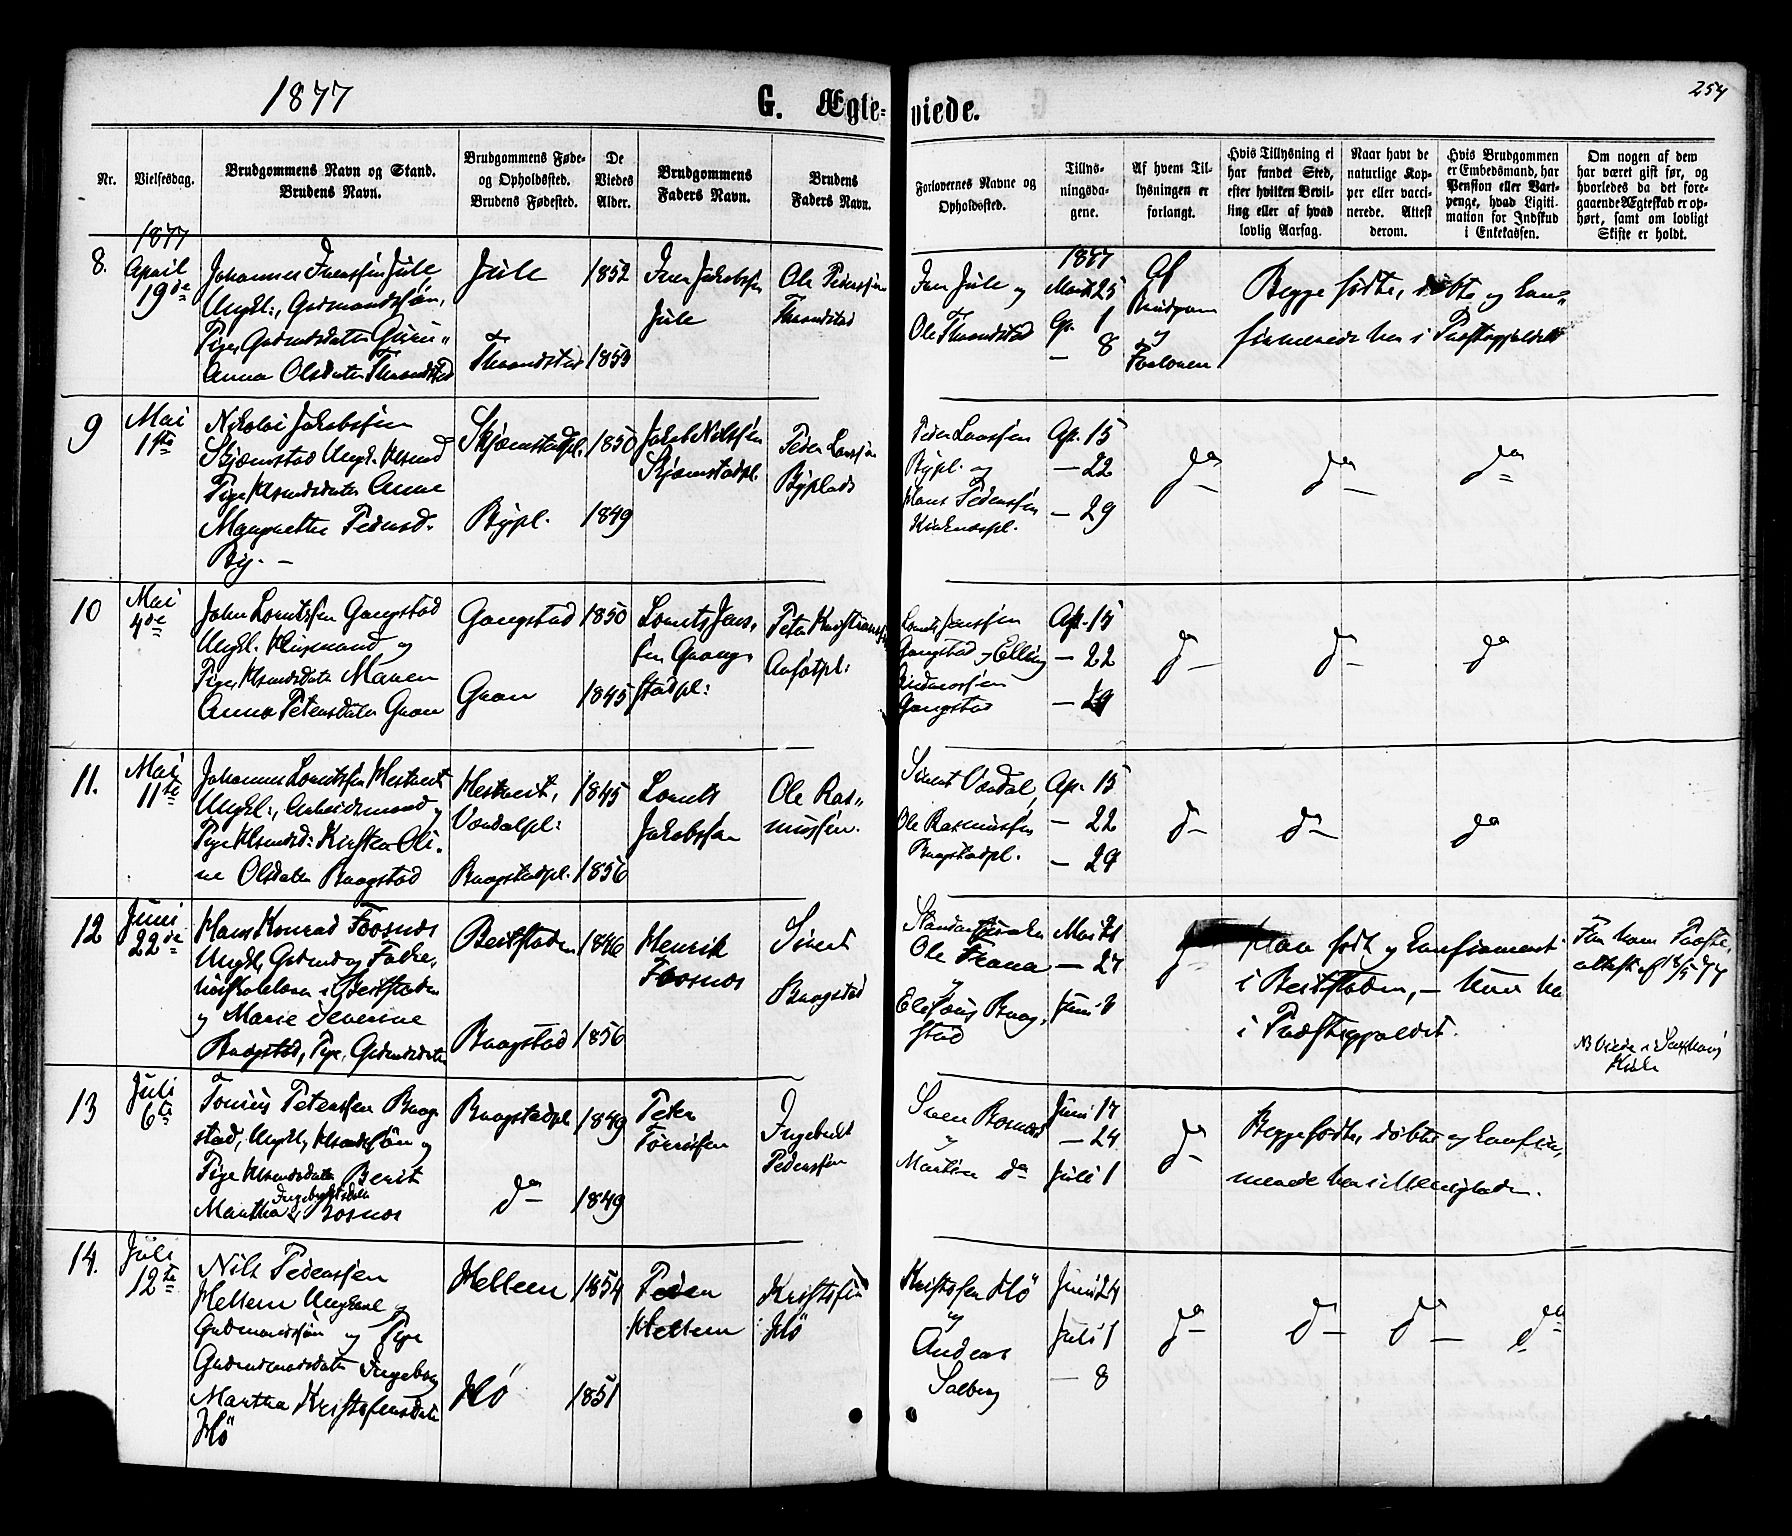 1877
G. Ægte=
viede.
254
Nr.
Vielsesdag.
Brudgommens Navn og Stand.
Brudens Navn.
Brudgommens Føde-
og Opholdssted.
Brudens Fødested.
De
Viedes
Alder.
Brudgommens
Faders Navn.
Brudens
Faders Navn.
Forlovernes Navne og
Opholdssted.
Tillys-
ningsda-
gene.
Af hvem Til-
lysningen er
forlangt.
Hvis Tillysning ei
har fundet Sted,
efter hvilken Bevil-
ling eller af hvad
lovlig Aarsag.
Naar havt de
naturlige Kop-
per eller vacci-
nerede. Attest
derom.
Hvis Brudgommen
er Embedsmand, har
Pension eller Vart-
penge, hvad Ligiti-
mation for Indskud
i Enkekassen.
Om nogen af dem
har været gift før, og
hvorledes da det fore-
gaaende Ægteskab er op-
hørt, samt om lovligt
Skifte er holdt.
8.
1877
April
19de
Johannes Iverssøn Jule
Ungkl., Gaardmandssøn,
Pige, Gaardmdsdatter Guru"
Anna Olsdatter Thrandstad
Jule
Thrandstad
1852
1853
Iver Jakobssøn
Jule
Ole Pederssøn
Thrandstad
Iver Jule og
Ole Thrandstad
1877
Marts 25
Ap. 1
— 8
Af
Brudgom
og
Forlover
Begge fødte, døbte og kon"
firmerede her i Præstegjeldet
9
Mai
1ste
Nikolai Jakobssøn
Skjæmstad Ungk. Husmd
Pige Husmdsdatter Anne
Margrethe Pedersd.
By. —
Skjæmstadpl.
Bypl.
1850
1849
Jakob Nilssøn
Skjæmstadpl.
Peder Larssøn
Byplads
Peder Larssøn
Bypl. og
Hans Pederssøn
Kirknespl.
Ap. 15
— 22
— 29
da
da
da
10
Mai
4de
John Lorntssøn Gangstad
Ungkl. Husmand og
Pige, Husmdsdatter Maren
Anna Petersdatter Gran
Gangstad
Gran
1850
1845
Lornts Jens,
søn Gang,
stadpl:
Peter Kristianssøn
Lornts Jenssøn
Gangstad og Elling
Gangstad
Ap. 15
— 22
— 29
da
da
da
11.
Mai
11te
Johannes Lorntssøn Hestveit
Ungkl:, Arbeidsmand og
Pige Husmdsd: Kirsten Oli-
ne Olsdatter Raagstad
Hestveit,
Vændalpl:
Raagstadpl.
1845
1856
Lornts
Jakobssøn
Ole Ras"
mussøn.
Sivert Vændal,
Ole Rasmussøn
Raagstadpl.
Ap. 15
— 22
— 29
da
da
da
12
Juni
22de
Hans Konrad Fosnes
Ungkl, Gaardmd og Folke,
høiskolelærer i Beitstaden
og Marie Severine
Raagstad, Pige, Gaardmdsdatter
Beitstaden
Raagstad
1846
1856
Henrik
Fosnes
Sivert
Raagstad
Ole Five
og
Elefæus Raag,
stad
Mai 21
— 27
Juni 3
da
Han født og konfirmeret
i Beitstaden, — hun her
i Præstegjeldet.
Fra ham Præste,
attest af 18/5 77
NB Viede i Saxhaug
Kirke
13
Juli
6te
Tomas Peterssøn Raag
stad, Ungkl, Husmdssøn og
Pige Husmdsdatter Berit
Martha Ingebrigtsdatter Rosnes
Raagstadpl
da
1849
1849
Peder
Ingebrigt
Pederssøn
Sven Rosnes
og
Martin da
Juni 17
— 24
Juli 1
da
Begge fødte, døbte og konfir,
merede her i Menigheden.
14.
Juli
12te
Nils Pederssøn
Hellem Ungkarl og
Gaardmandssøn og Pige
Gaardmandsdatter Ingeborg
Martha Kristofersdatter
Hø
Hellem
Hø
1854
1851
Peder
Hellem
Kristofer
Hø
Kristofer Hø
og
Anders
Salberg
Juni 24
Juli 1
— 8
da
da
da
da